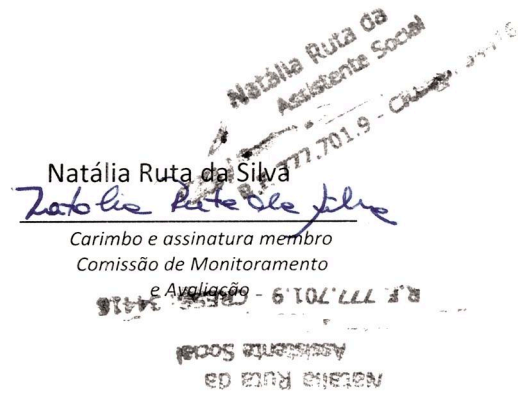 Natália Ruta da
Assistente Social
R.F. 777.701.9 - 34416
Natália Ruta da Silva
Natalia Ruta da Silva
Carimbo e assinatura membro
Comissão de Monitoramento
e Avaliação
R.F. 777.701.9 - CRESS: 34416
Assistente Social
Natália Ruta da